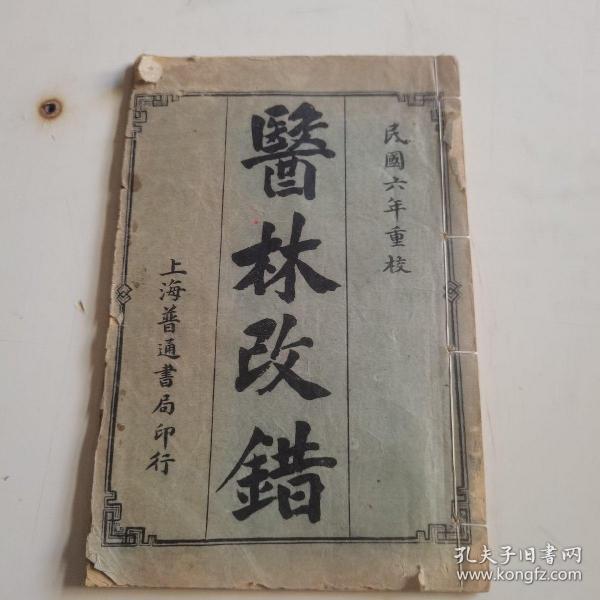 民國六年重校
醫林改錯
上海普通書局印行
孔夫子旧书网
www.kongfz.com